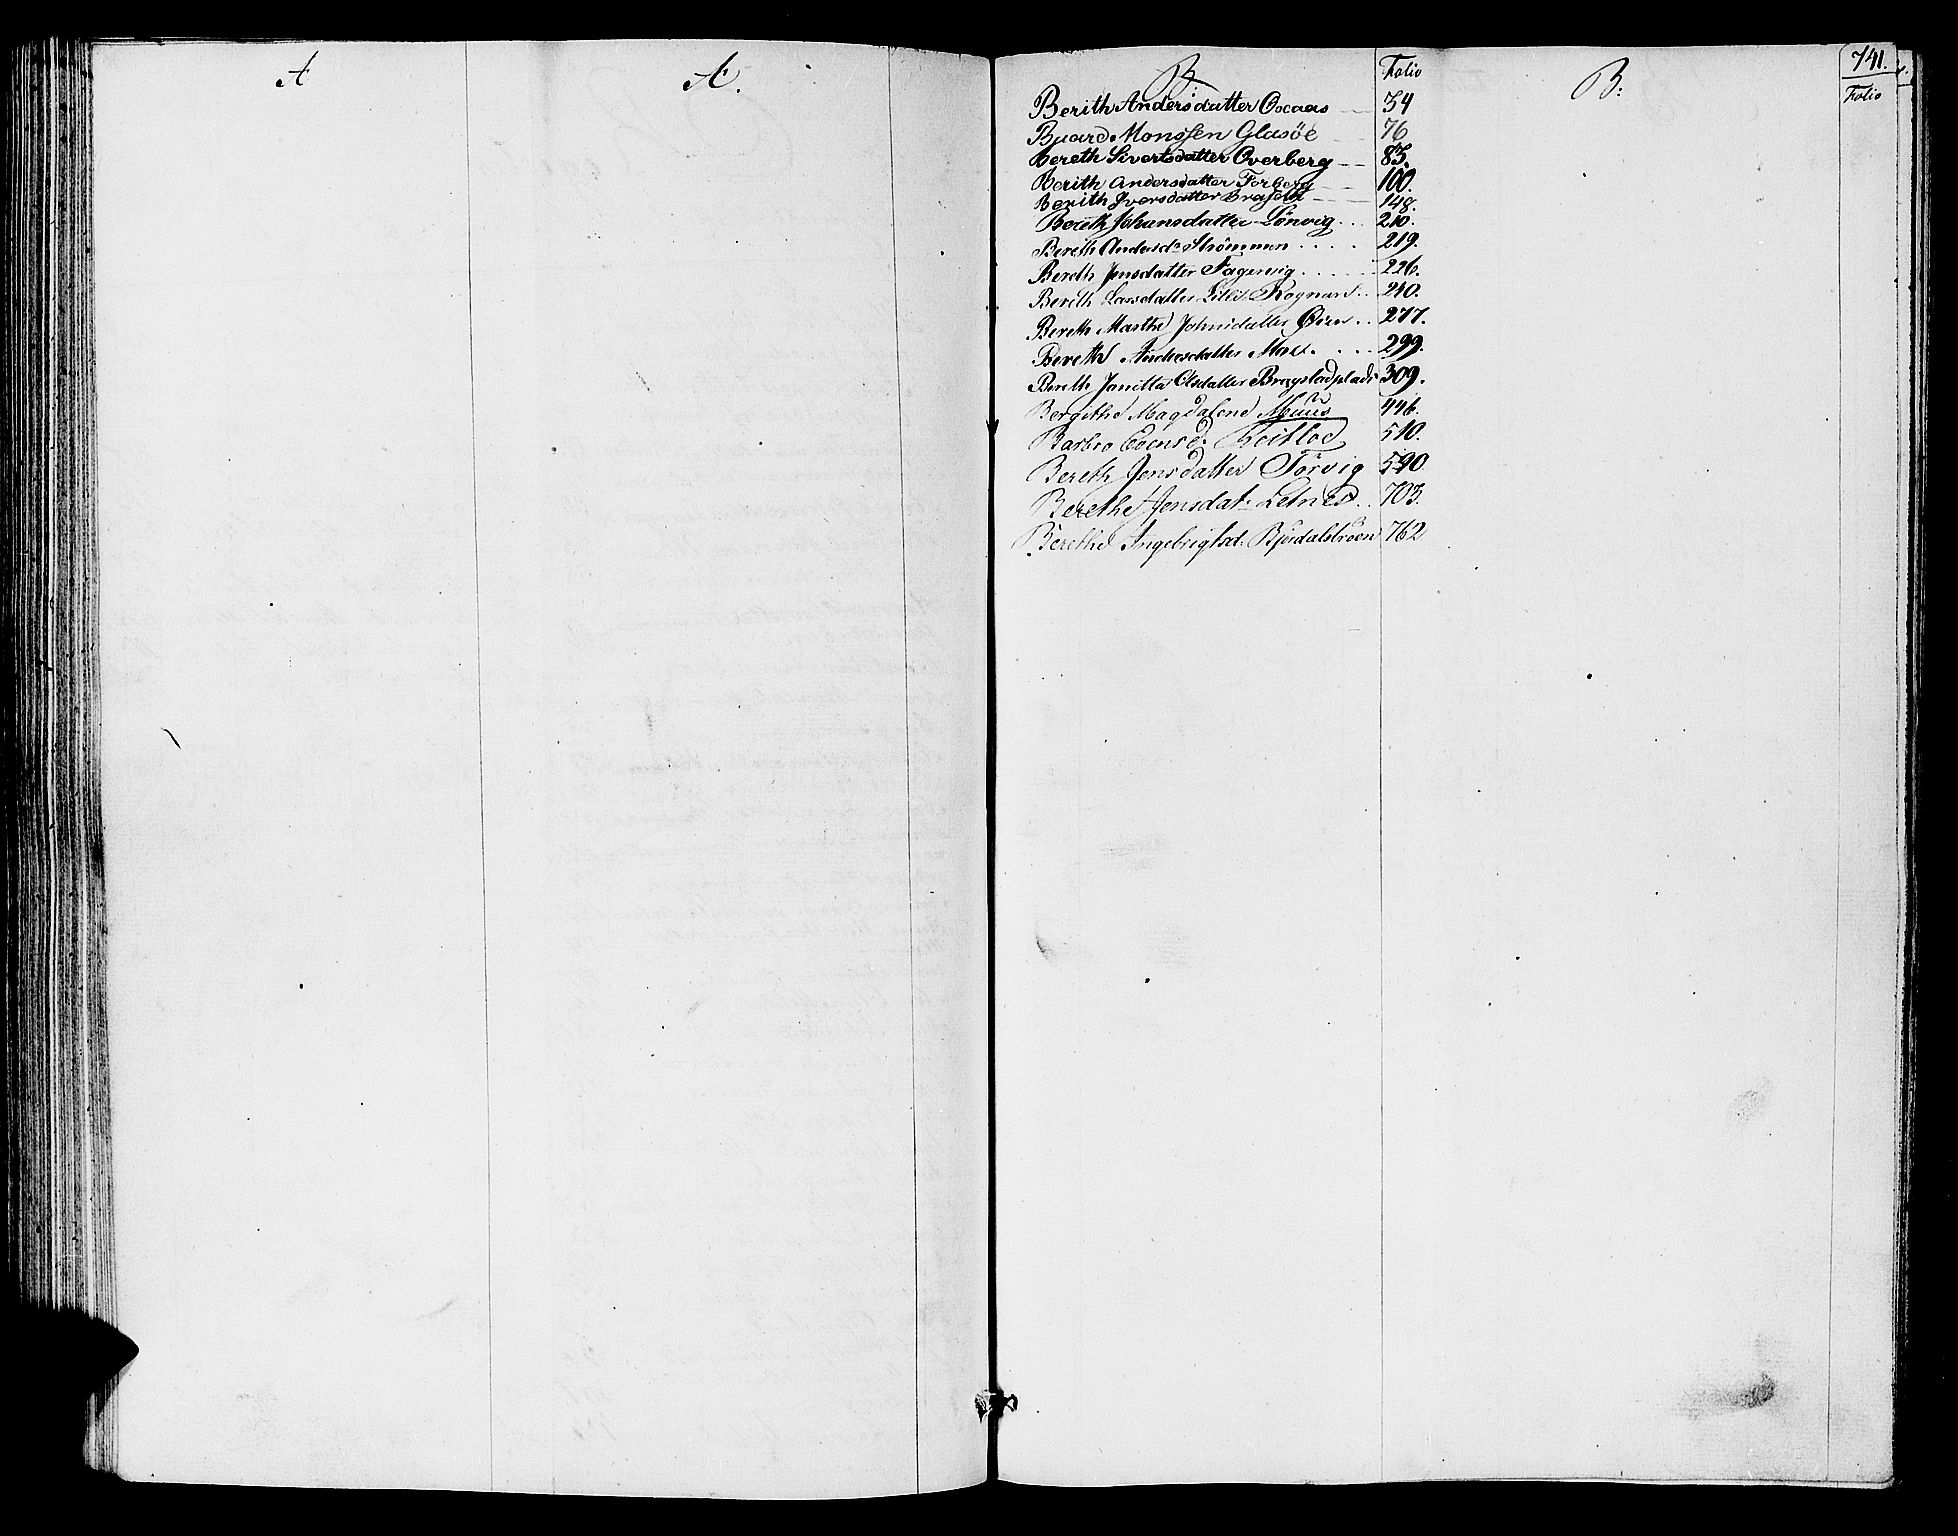 A
A.
B:
Folio
B:
741.
Folio
Berith Andersdatter Oxaas 34
Baard Monssen Glasöe 76
Bereth Sivertsdatter Overberg 83.
Berith Andersdatter Forberg 100.
Berith Iversdatter 148.
Bereth Johansdatter Lönvig 210.
Bereth Andersd: Strömmen 219.
Bereth Jensdatter Fagervig 226.
Bereth Larsdatter Lille Rognan 240.
Bereth Marthe Johnsdatter Øren 277.
Bereth Andersdatter Moe 299.
Bereth Janitta Olsdatter Brægstadplads 309.
Bergithe Magdalene Muus 446.
Barbro Evensd. 510.
Bereth Jensdatter Törvig 590
Berethe Jensdat: Letnes 703.
Berethe Ingebrigtsd: 762